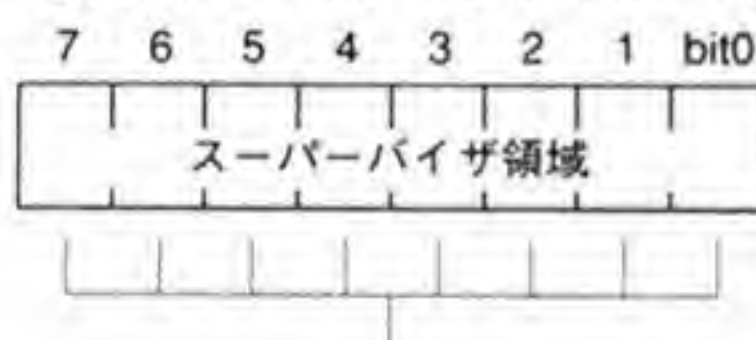 7 6 5 4 3 2 1 bit0
スーパーバイザ領域